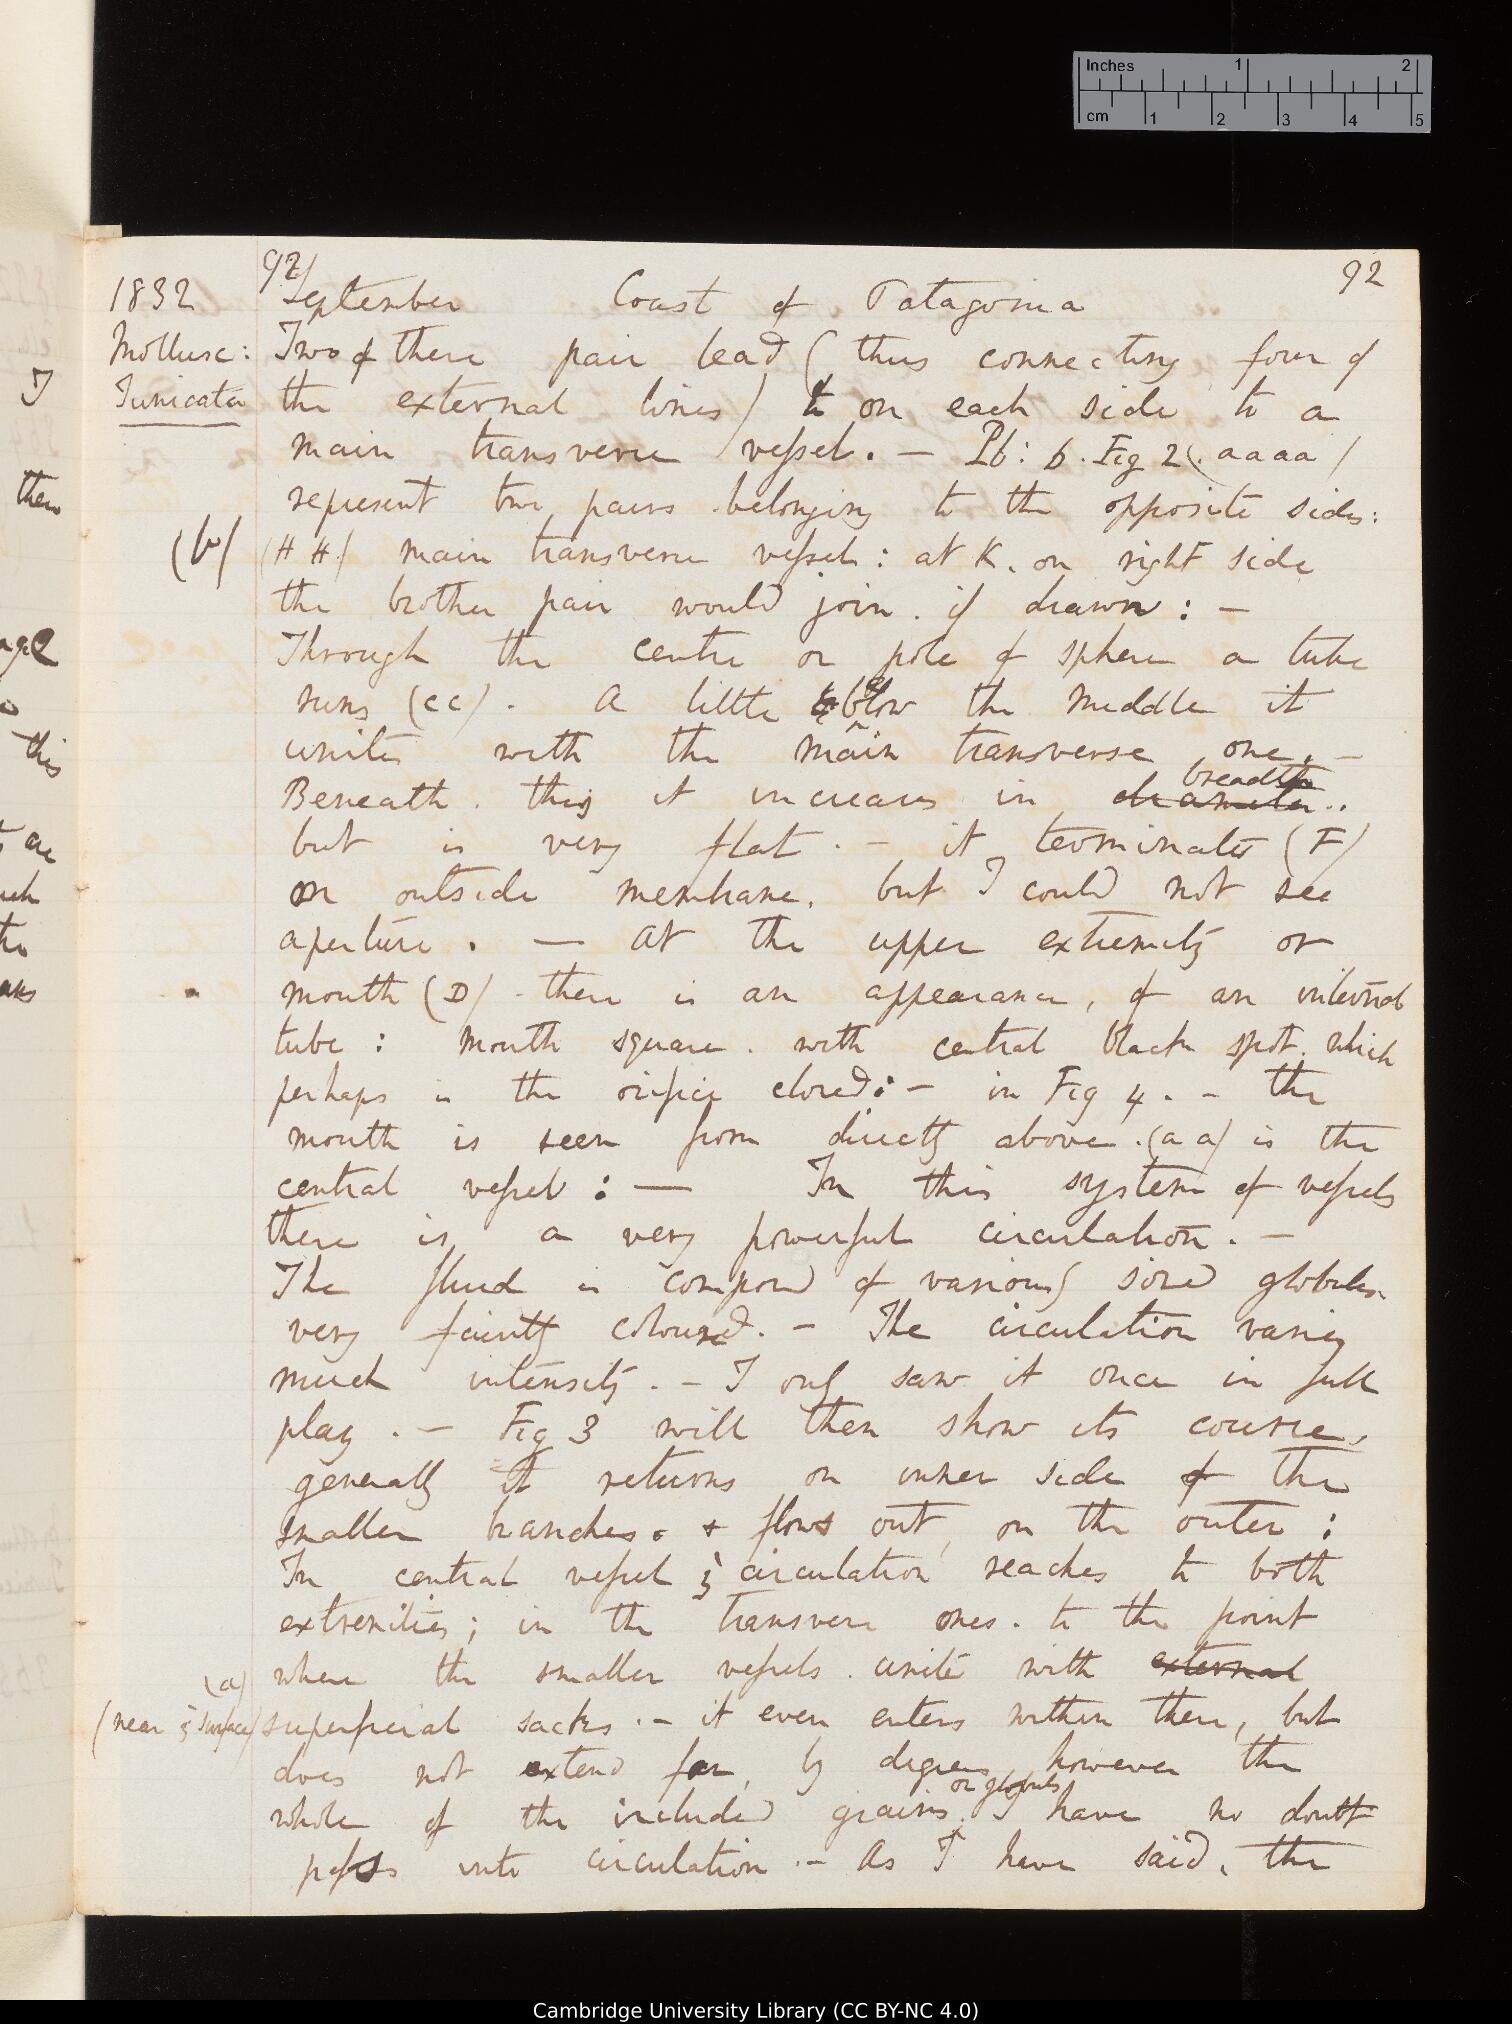 Inches 1 2
cm 1 2 3 4 5
92 92
1832 September Coast of Patagonia
Mollusc: Two of these pair lead (thus connecting four of
Tunicata the external lines) to on each side to a
main transverse vessel. — Pl: 6. Fig 2 (.aaaa)
represent two pairs belonging to the opposite sides:
(b) (H H) main transverse vessel: at K. on right side
the brother pair would join. if drawn: —
Through the centre or pole of sphere a tube
runs (cc). A little below the middle it
unites with the main transverse one. —
breadth
Beneath this it increases in diameter..
but is very flat. — it terminates (F)
on outside membrane. but I could not see
aperture. — At the upper extremity or
mouth (D) there is an appearance, of an internal
tube: mouth square. with central black spot. which
perhaps is the orifice closed: — in Fig 4. — the
mouth is seen from directly above. (a a) is the
central vessel: — In this system of vessels
there is a very powerful circulation. —
The fluid is composed of various sized globules
very faintly coloured. — The circulation varies
much intensity. — I only saw it once in full
play. — Fig 3 will then show its course,
generally it returns on inner side of the
smaller branches. & flows out, on the outer:
In central vessel circulation reaches to both
extremities; in the transverse ones. to the point
(a) where the smaller vessels unite with external
(near surface) superficial sacks. — it even enters within them, but
does not extend far, by degrees however the
or globules
whole of the included grains I have no doubt
pass into circulation. — As I have said, the
I
then
this
are
Cambridge University Library (CC BY-NC 4.0)